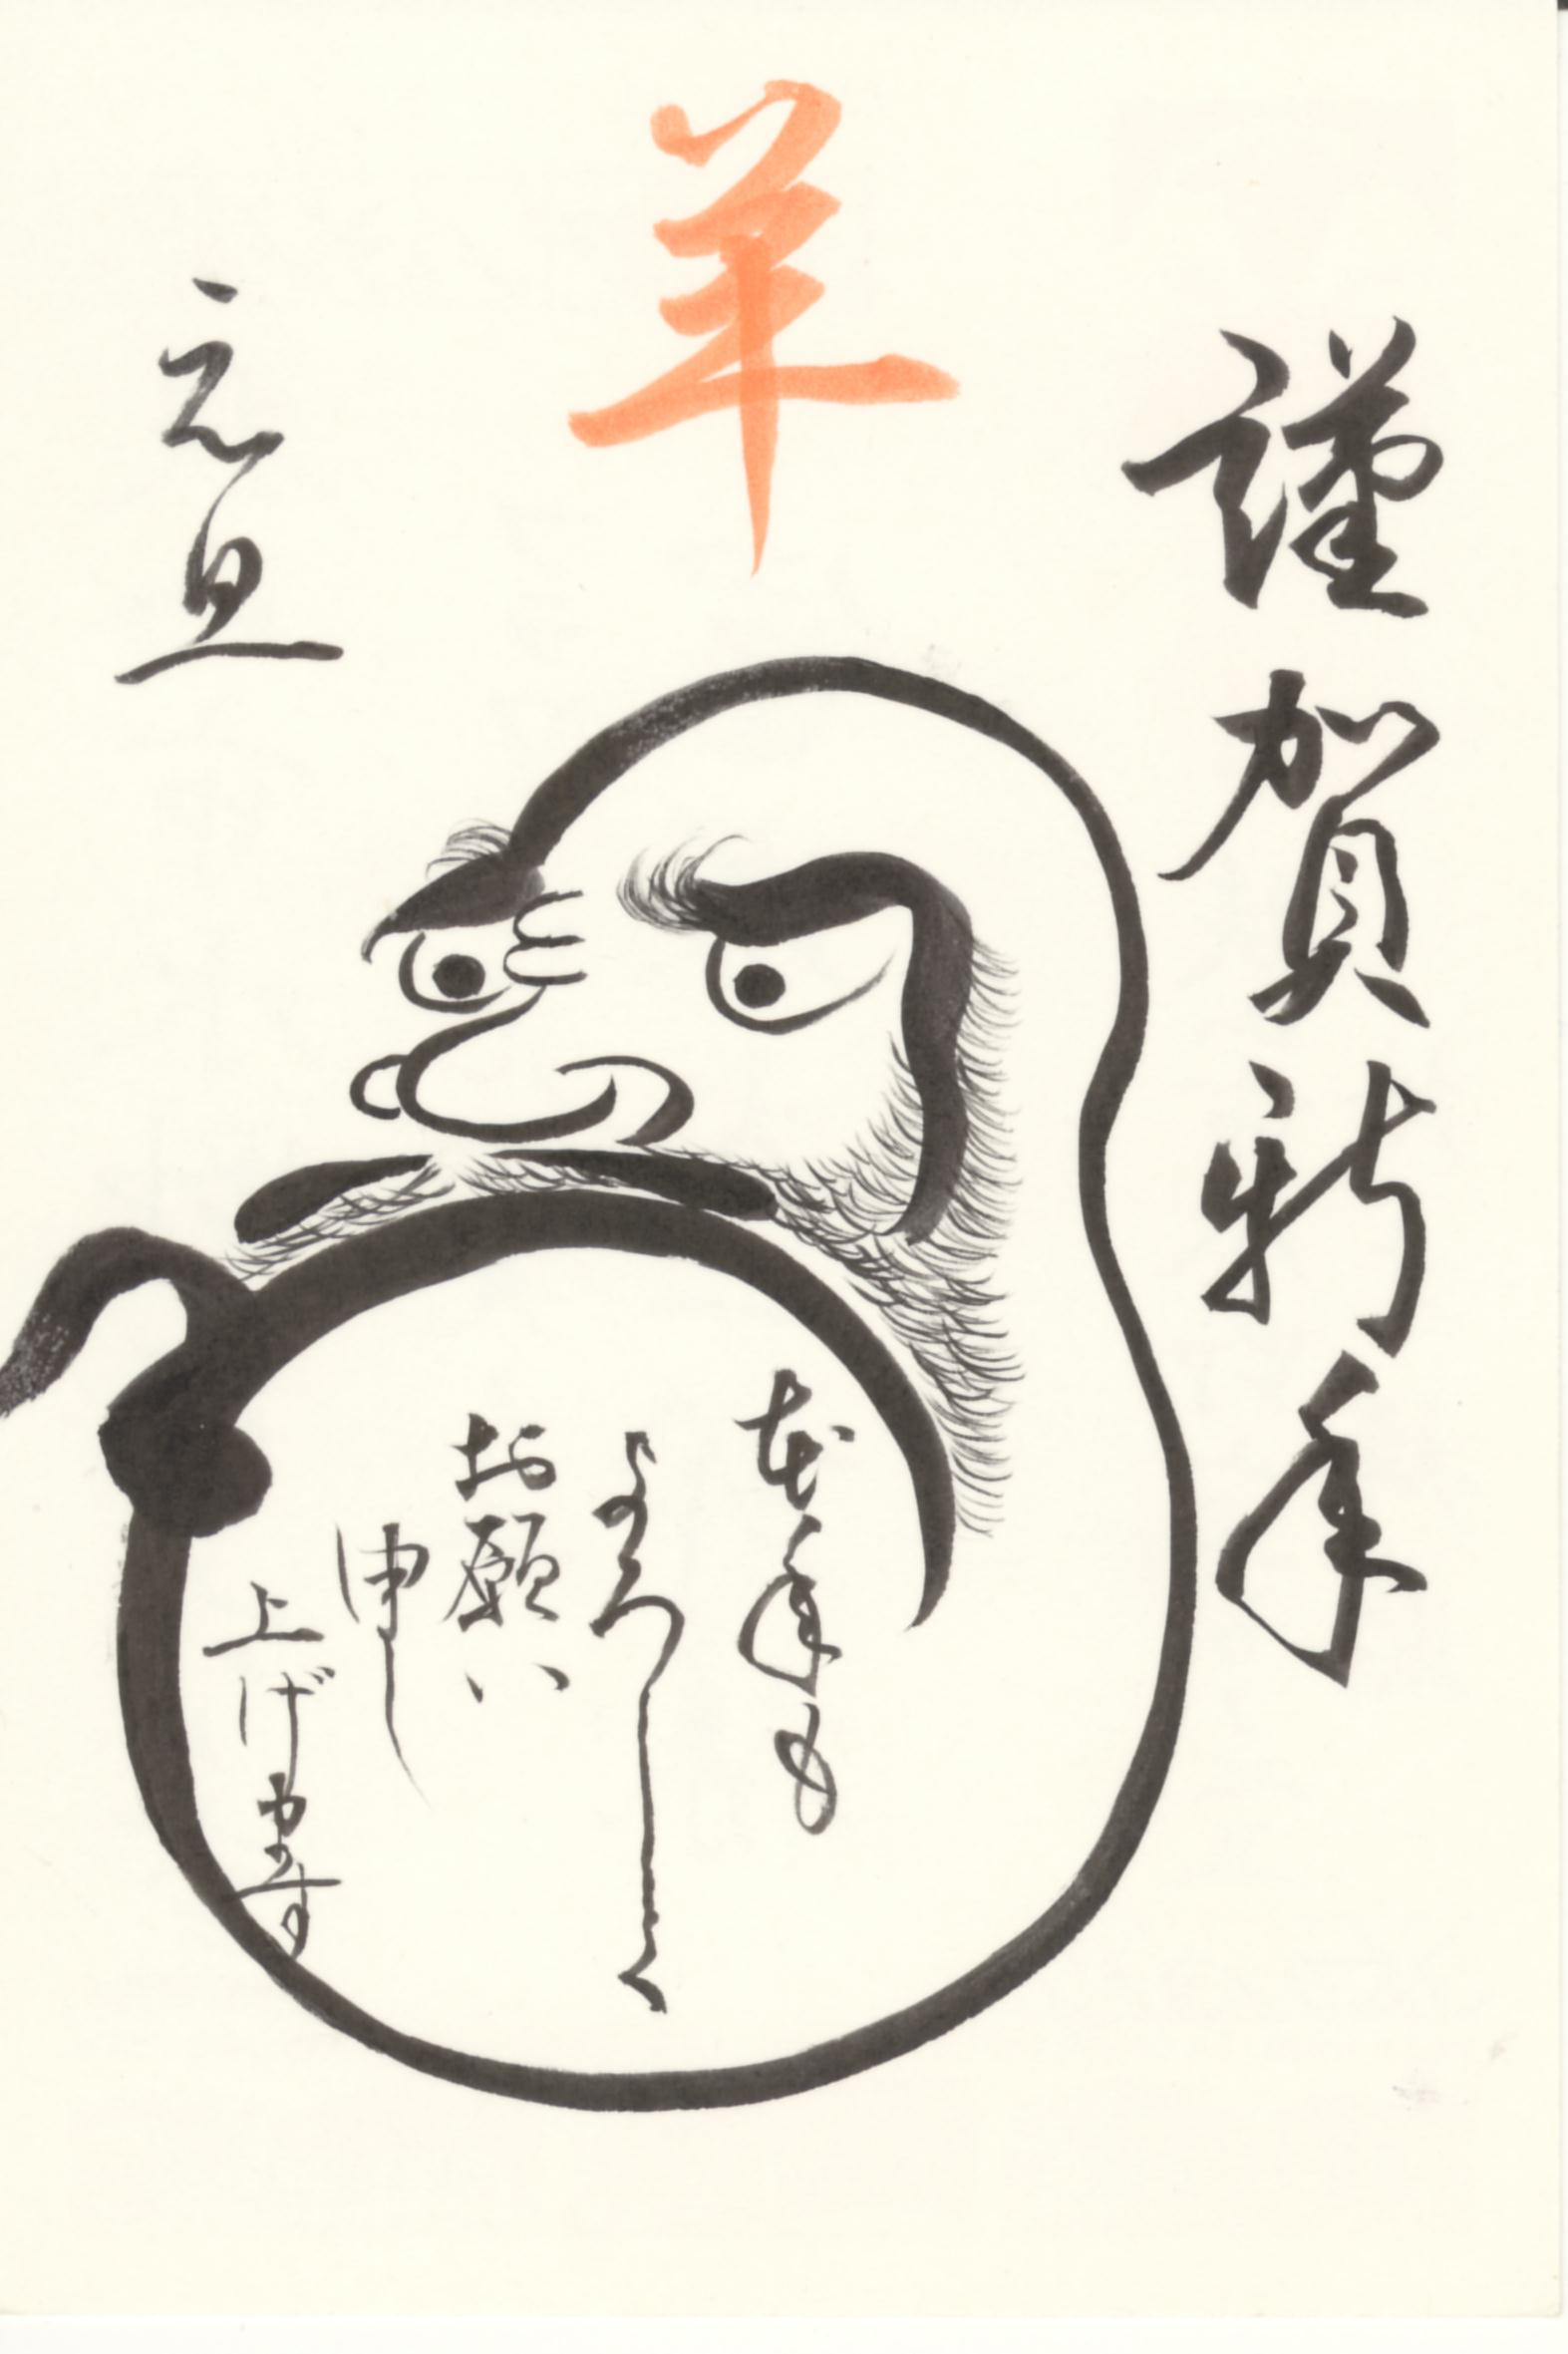 謹賀新年
羊
元旦
本年も
よろしく
お願い
申し
上げます